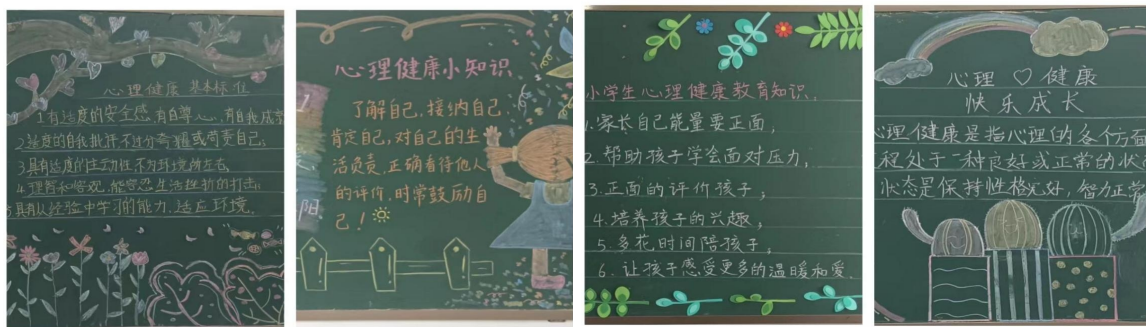 心理健康 基本标准
1有适度的安全感,有自尊心,有自我成
2适度的自我批评,不过分夸耀或苛责自己;
3具有适度的主动性,不为环境所左右;
4理智和客观,能容忍生活挫折的打击;
5具有从经验中学习的能力,适应环境。
心理健康小知识
了解自己,接纳自己,
肯定自己,对自己的生
活负责,正确看待他人
的评价,时常鼓励自
己!
阳
小学生心理健康教育知识,
1.家长自己能量要正面;
2.帮助孩子学会面对压力;
3.正面的评价孩子;
4.培养孩子的兴趣;
5.多花时间陪孩子;
6.让孩子感受更多的温暖和爱.
心理♡健康
快乐成长
心理健康是指心理的各个方面
程处于一种良好或正常的状
状态是保持性格完好,智力正常